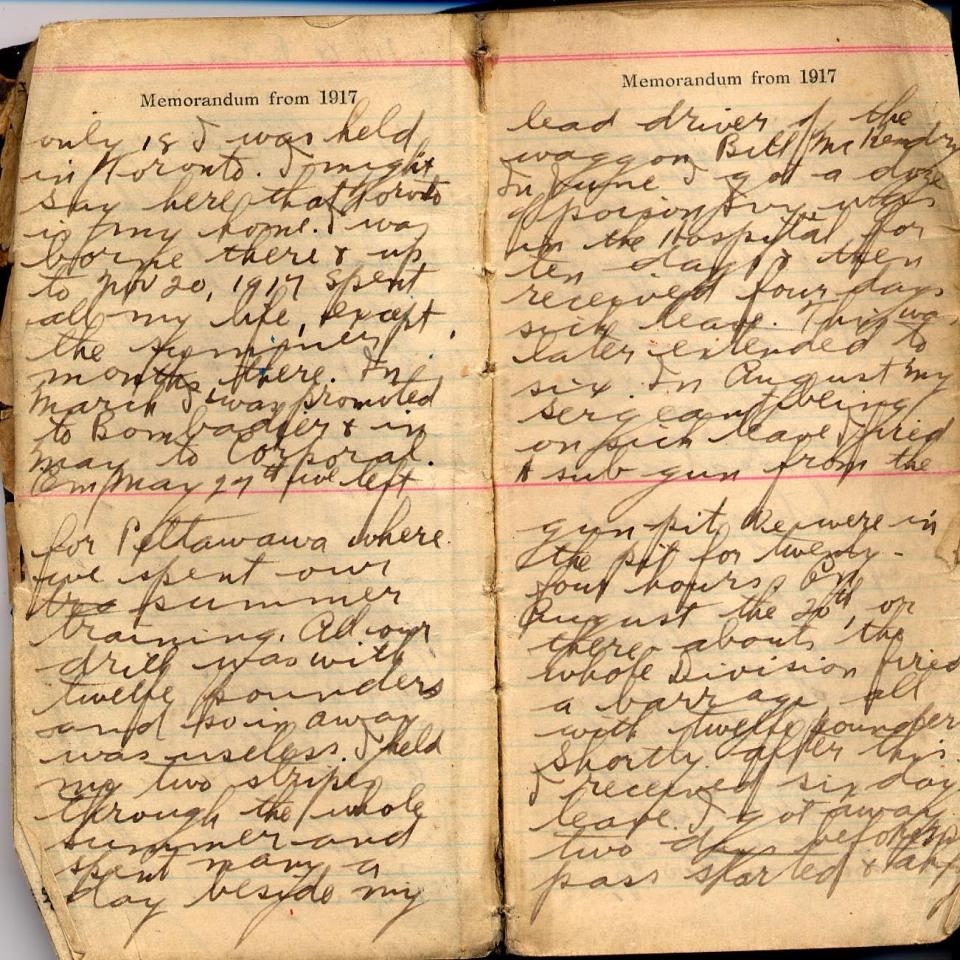 Memorandum from 1917
only 18 I was held
in Toronto. I might
say here that Toronto
is my home. I was
borne there & up
to Nov 20, 1917 spent
all my life, except
the summer
months there. In
March I was promoted
to Bombadier & in
May to Corporal.
On May 27th we left
for Pettawawa where
we spent our
summer
training. All our
drill was with
twelve pounders
and so in away
was useless. I held
my two stripes
through the whole
summer and
spent many a
day beside my
Memorandum from 1917
lead driver of the
waggon Bill McKendry
In June I got a dose
of poison Ivy was
in the Hospital for
ten days & then
received four days
sick leave. This was
later extended to
six. In August my
sergeant being
on sick leave I fired
A sub gun from the
gun pit. We were in
the pit for twenty-
four hours. On
August the 20th, or
there abouts the
whole Division fired
a barrage all
with twelve pounders
Shortly after this
I received six day
leave. I got away
two days before my
pass started &